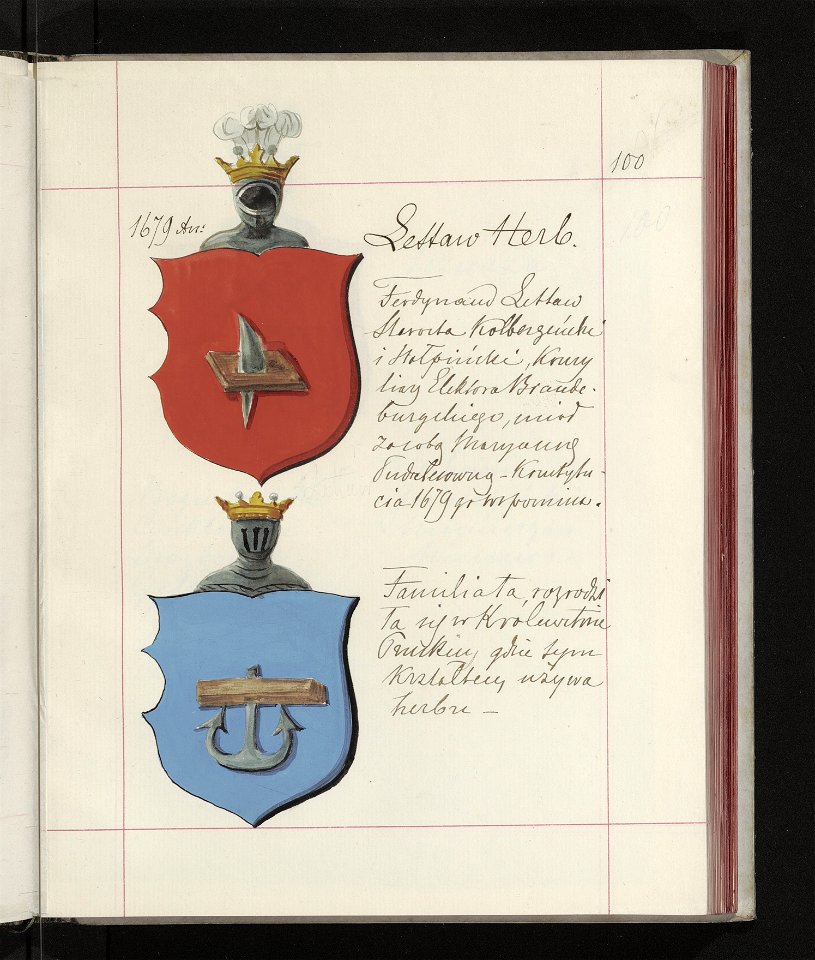 100
1679 An:
Lettaw Herb.
Ferdynand Lettaw
Starosta Kolbergeński
i Stołpiński, Konsy
liarz Elektora Brande-
burgskiego, miał
za sobą Maryannę
Konstytu-
cia 1679 go wspomina.
Familia ta, rozrodzi
ła się w Królewstwie
Pruskim, gdzie tym
kształtem używa
herbu —